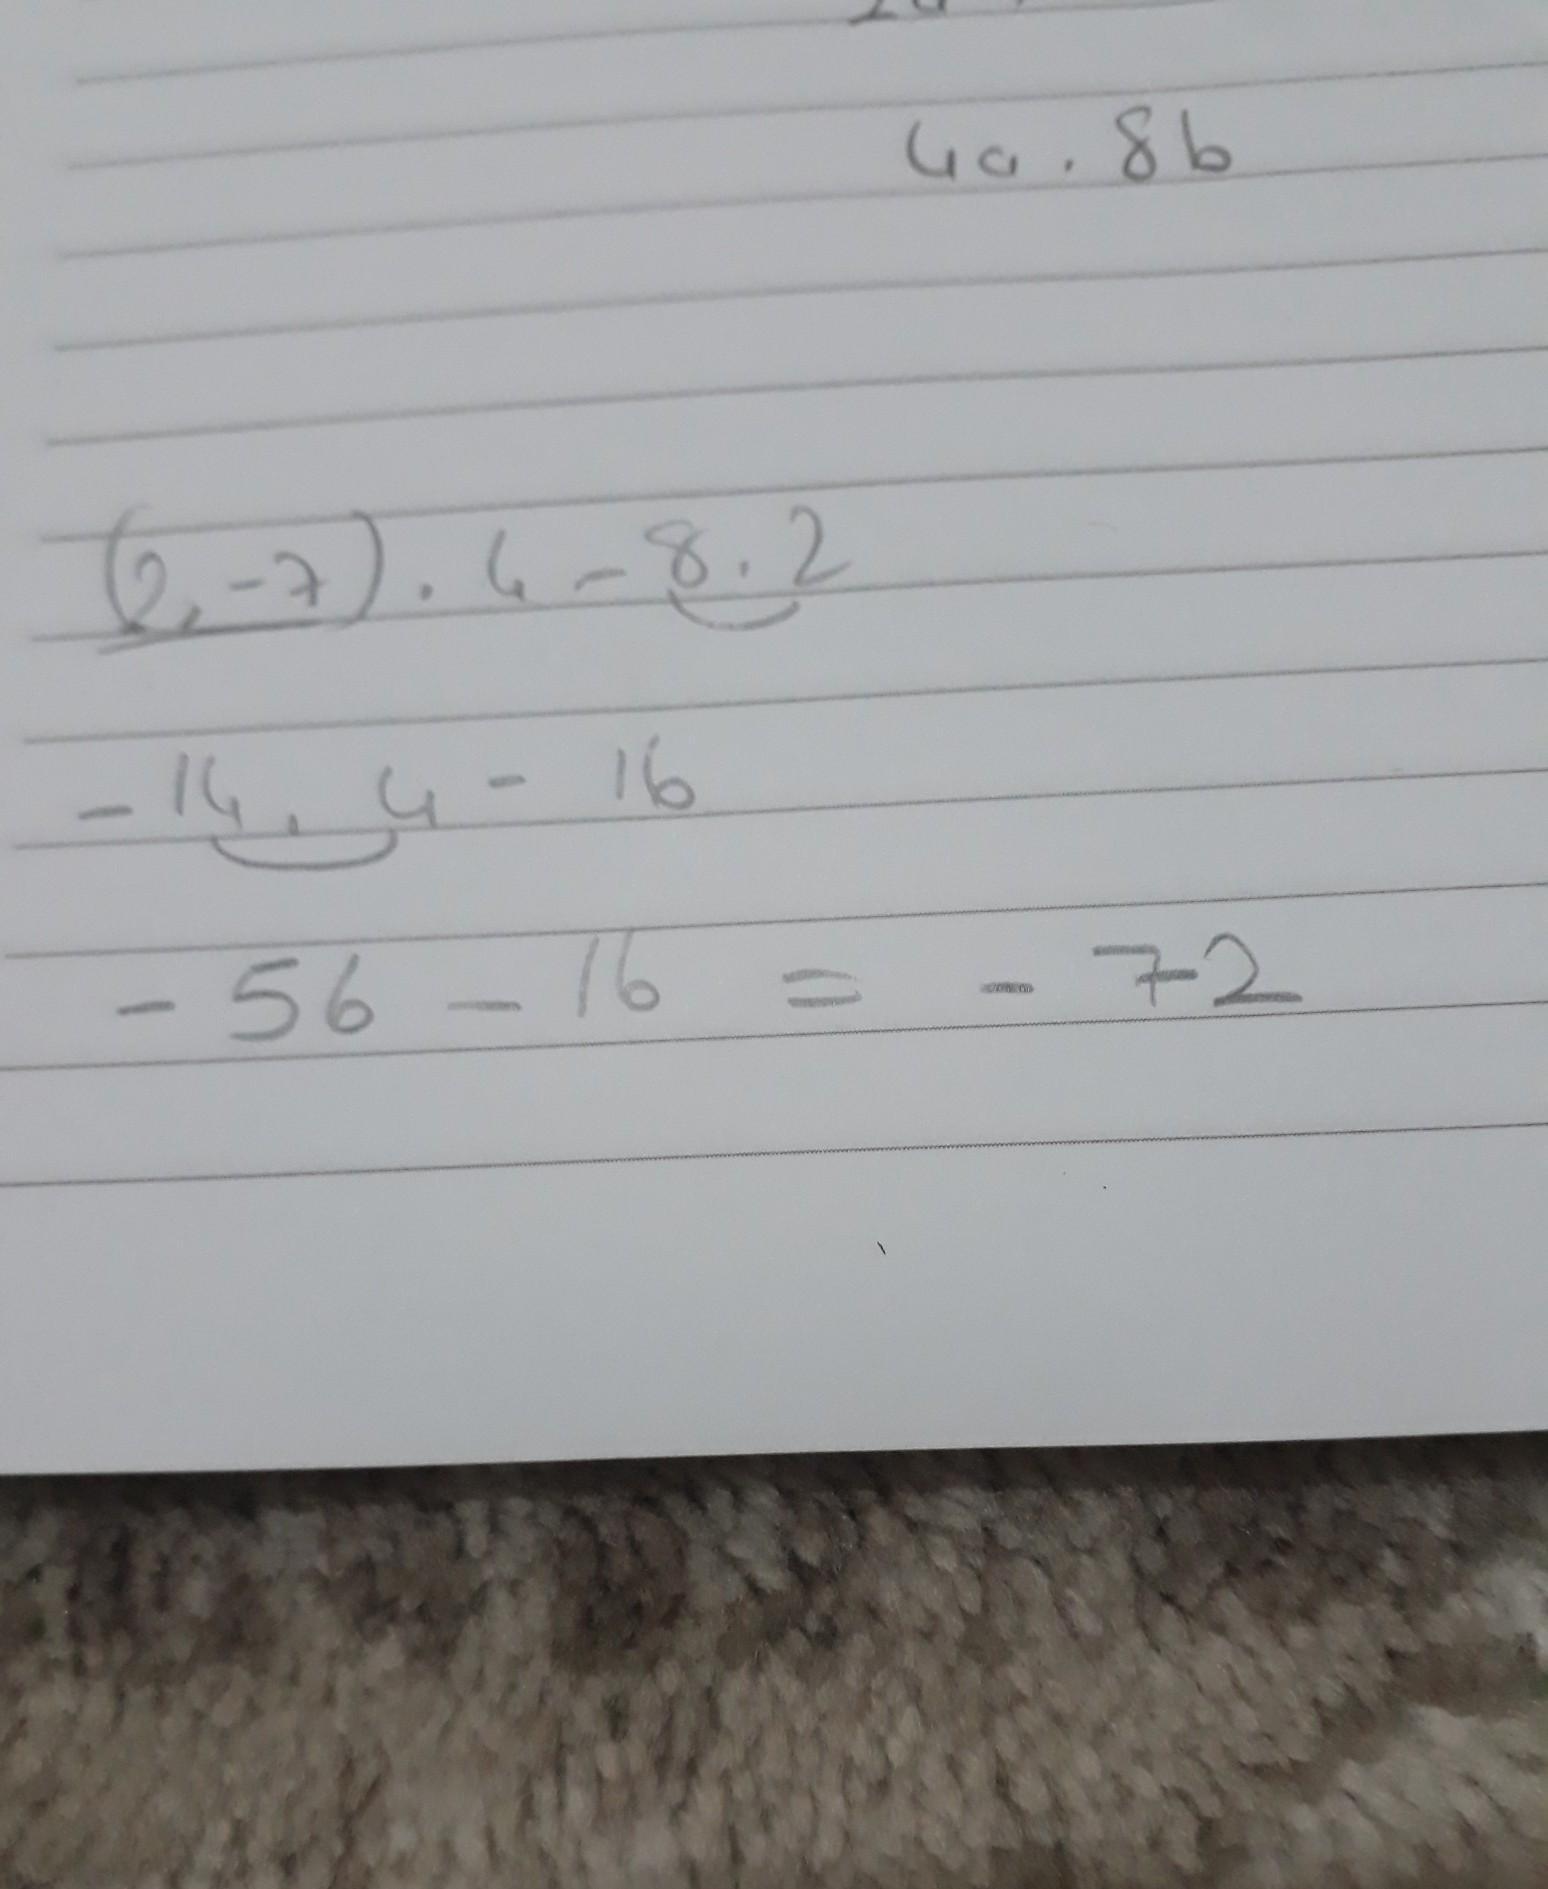 4a . 8b
(2.-7) . 4 - 8 . 2
-14 . 4 - 16
- 56 - 16 = - 72